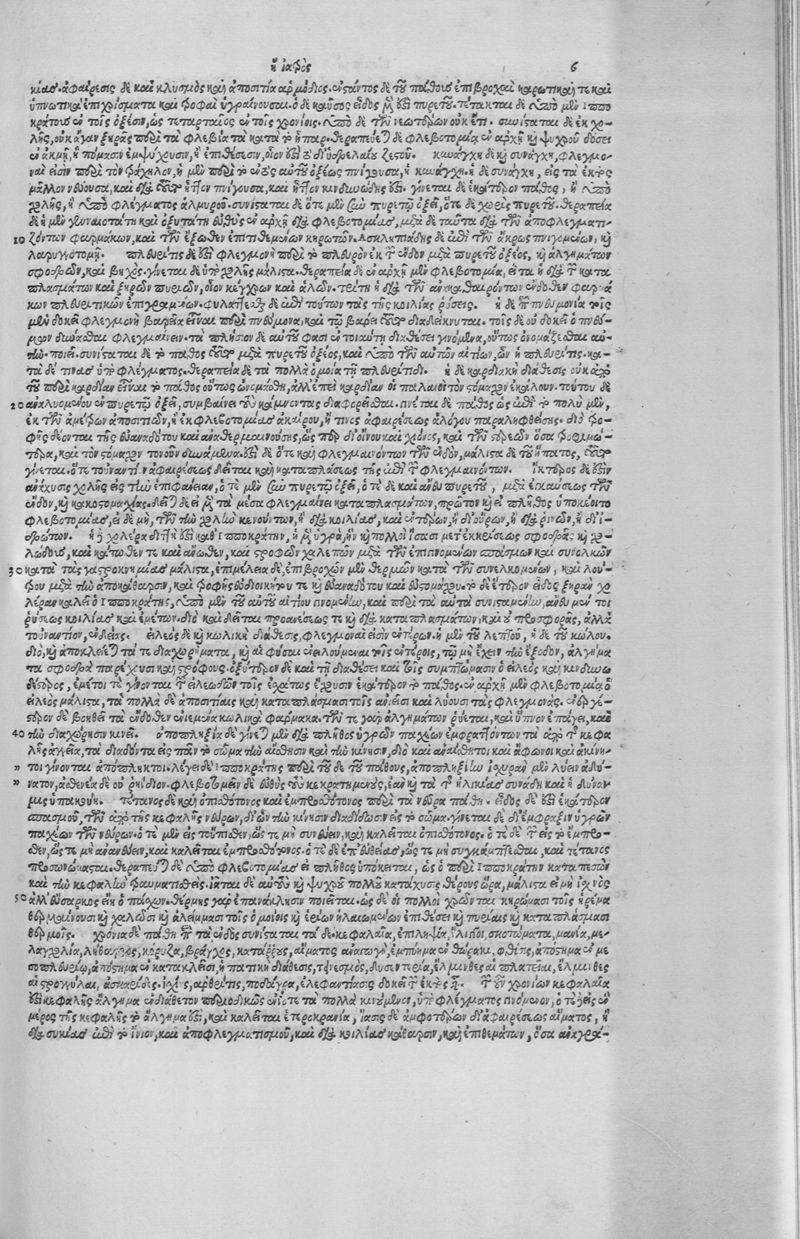 ἢ ἰατρὸς 6
κίας. ἀφαίρεσις δὲ καὶ κλυσμὸς καὶ ἀποσιτία ἁρμόδιος. στάντος δὲ τοῦ πάθους ἐπιβροχαὶ καρωτικαί τε καὶ
ὑπνωτικαὶ ἐπιχρίσματα καὶ ῥοφαὶ ὑγραίνουσαι. ὁ δὲ καῦσος εἶδος μέν ἐστι πυρετοῦ. τέτακται δὲ ὑπὸ μὲν ἱππο
κράτους ἐν τοῖς ὀξέσιν, ὡς τεταρταῖος ἐν τοῖς χρονίοις. ὑπὸ δὲ τῶν νεωτέρων οὐκέτι. συνίσταται δὲ ἐκ χο
λῆς, οὐκ ἄγαν ξηρᾶς περὶ τὰ φλεβία τὰ κατὰ τὸ ἧπαρ. θεραπεύεται δὲ φλεβοτομίᾳ ἐν ἀρχῇ καὶ ψυχροῦ δόσει
ἐν ἀκμῇ, ἢ πόμασιν ἐμψύχουσιν, ἢ ἐπιθέσεσιν, οἷόν ἐστι δι' ὀξυροδίνου ζεστοῦ. κυνάγχη δὲ καὶ συνάγχη, φλεγμο
ναί εἰσιν περὶ τὸν φάρυγγα, ἡ μὲν περὶ τὸ ἐντὸς αὐτοῦ ὀξέως πνίγουσα, ἡ κυνάγχη. ἡ δὲ συνάγχη, εἰς τὰ ἐκτὸς
μᾶλλον ῥέουσα, καὶ διὰ τοῦτο ἧττον πνίγουσα, καὶ ἧττον κινδυνώδης ἐστί. γίνεται δὲ ἑκάτερον πάθος, ἢ ὑπὸ
χολῆς, ἢ ὑπὸ φλέγματος ἁλμυροῦ. συνίσταται δὲ ὁτὲ μὲν σὺν πυρετῷ ὀξεῖ, ὁτὲ δὲ χωρὶς πυρετοῦ. θεραπεία
δὲ ἡ μὲν γενναιοτάτη καὶ ὀξυτάτη εὐθὺς ἐν ἀρχῇ διὰ φλεβοτομίας, μετὰ δὲ ταῦτα διὰ τῶν ἀποφλεγματι-
10 ζόντων φαρμάκων, καὶ τῶν ἔξωθεν ἐπιτιθεμένων κηρωτῶν. Ἀσκληπιάδης δὲ ἐπὶ τῶν ἄκρως πνιγομένων, καὶ
λαρυγγοτομῇ. πλευρῖτις δέ ἐστι φλεγμονὴ περὶ τὸ πλευρὸν ἐκ τῶν ἔνδον μετὰ πυρετοῦ ὀξέος, καὶ ἀλγημάτων
σφοδρῶν, καὶ βηχός. γίνεται δὲ ὑπὸ χολῆς μάλιστα. θεραπεία δὲ ἐν ἀρχῇ μὲν φλεβοτομία, εἶτα ἡ διὰ τῶν κατα
πλασμάτων καὶ ξηρῶν πυριῶν, οἷον κέγχρων καὶ ἁλῶν. τρίτη ἡ διὰ τῶν ἀνακαθαιρόντων ἔνδοθεν φαρμά
κων πλευριτικῶν ἐπιγραφομένων. φυλάττεσθαι δὲ ἐπὶ τούτων τὰς τῆς κοιλίας ῥύσεις. ἡ δὲ περιπνευμονία τισὶ
μὲν δοκεῖ φλεγμονὴ βαρεῖα εἶναι περὶ πνεύμονα, καὶ τῷ βάρει τοῦτο διαδείκνυται. τοῖς δὲ οὐ δοκεῖ ὁ πνεύ-
μων δύνασθαι φλεγμαίνειν. τὰ πλησίον δὲ αὐτοῦ φασὶ ἐν τοιαύτῃ διαθέσει γινόμενα, οὕτως ὀνομάζεσθαι αυ-
τήν. ποιεῖ. συνίσταται δὲ τὸ πάθος τοῦτο μετὰ πυρετοῦ ὀξέος, καὶ ὑπὸ τῶν αὐτῶν αἰτίων, ὧν ἡ πλευρῖτις. κα-
τὰ δέ τινας ὑπὸ φλέγματος. θεραπεία δὲ τὰ πολλὰ ὁμοία τῇ πλευρίτιδι. ἡ δὲ καρδιακὴ διάθεσις οὐκ ἀπὸ
τοῦ περὶ καρδίαν εἶναι τὸ πάθος οὕτως ὠνομάσθη, ἀλλ' ἐπεὶ καρδίαν οἱ παλαιοὶ τὸν στόμαχον ἐκάλουν. τούτου δὲ
20 ἐκλυομένου ἐν πυρετῷ ὀξεῖ, συμβαίνει τοὺς κάμνοντας διαφορεῖσθαι. γίνεται δὲ πάθος ὡς ἐπὶ τὸ πολὺ μὲν,
ἐκ τῶν ἀμέτρων ἀποσιτιῶν, ἢ ἐκ φλεβοτομίας ἀκαίρου, ἤ τινος ἀφαιρέσεως ἀλόγου παραληφθείσης. διὸ ῥο-
φῆς δέονται τῆς εὐανα δότου καὶ ἀναθερμαινούσης, ὡς περ δι' οἴνου καὶ χιόνος, καὶ τῶν στερεῶν ὅσα ῥωμαλεώ-
τερα, καὶ τὸν στόμαχον τονοῦν δυνάμενα. ἔστι δὲ ὅτε καὶ φλεγμαινόντων τῶν ἔνδον, μάλιστα δὲ τοῦ ἥπατος, τοῦτο
γίνεται. ὅτε τοὐναντίον ἀφαιρέσεως δεῖται καὶ καταπλάσεως τῆς ἐπὶ τῶν φλεγμαινόντων. ἴκτερος δέ ἐστιν
ἀνάχυσις χολῆς εἰς τὴν ἐπιφάνειαν, ὁτὲ μὲν σὺν πυρετῷ ὀξεῖ, ὁτὲ δὲ καὶ ἄνευ πυρετοῦ, μετὰ ἐκκαύσεως τῶν
ἔνδον, καὶ κακοστομαχίας. δεῖται δὲ εἰ μὲν τὰ μέσα φλεγμαίνει καταπλασμάτων, πρῶτον καὶ εἰ πλῆθος ὑποκέοιτο
φλεβοτομίας, εἰ δὲ μὴ, τῶν τὴν χολὴν κενούντων, ἢ διὰ κοιλίας, καὶ ἐντέρων, ἢ δι' οὔρων, ἢ διὰ ῥινῶν, ἢ δι' ἱ-
δρώτων. ἡ χολέρα διττή ἐστι καθ' Ἱπποκράτην, ἡ μὲν ὑγρὰ, ἣν καὶ πολλοὶ ἴσασι μετ' ἐκκρίσεως σφοδρᾶς καὶ χο-
λώδους, καὶ κάτωθέν τε καὶ ἄνωθεν, καὶ στροφῶν χαλεπῶν μετὰ τῶν ἐπιγινομένων σπασμῶν καὶ συνολκῶν
30 κατὰ τὰς γαστροκνημίας μάλιστα, ἐπιμέλεια δὲ, ἐπιβροχῶν μὲν θερμῶν κατὰ τῶν συνελκομένων, καὶ λου-
τροῦ μετὰ τὴν ἀποκάθαρσιν, καὶ ῥοφῆς εὐδιοικήτου τε καὶ εὐαναδότου καὶ εὐστομάχου. τὸ δὲ ἕτερον εἶδος ξηρὰν χο
λέραν καλεῖ ὁ Ἱπποκράτης, ὑπὸ μὲν τοῦ αὐτοῦ αἰτίου γινομένην, καὶ περὶ τὰ αὐτὰ συνισταμένην, ἄνευ μέντοι
ῥύσεως κοιλίας καὶ ἐμέτων. διὸ καὶ δεῖται προκενώσεώς τε καὶ διὰ καταπλασμάτων, καὶ οὐ προσφορᾶς, ἀλλὰ
τοὐναντίον, ἐνδείας. εἰλεὸς δὲ καὶ κωλικὴ διάθεσις, φλεγμοναί εἰσιν ἐντέρων. ἡ μὲν τοῦ λεπτοῦ, ἡ δὲ τοῦ κώλου.
διὸ, καὶ ἀποκλείεταί τε διαχωρήματα, καὶ αἱ φῦσαι ἐνειλούμεναι τοῖς ἐντέροις, τῷ μὴ ἔχειν τὴν ἔξοδον, ἀλγήμα
τα σφοδρὰ παρέχουσι καὶ στρόφους. ὀξύτερον δὲ καὶ τῇ διαθέσει καὶ τοῖς συμπτώμασιν ὁ εἰλεὸς καὶ κινδυνω
δέστερος, ἔμετοί τε γίνονται τῶν εἰλεωδῶν τοῖς ἐσχάτως ἔχουσιν ἑκάτερον τὸ πάθος. ἐν ἀρχῇ μὲν φλεβοτομία ὁ
εἰλεὸς μάλιστα, τὰ πολλὰ δὲ ἀποσιτίαις καὶ καταπλάσμασι τοῖς ἀνιεῖσι καὶ λύουσι τὰς φλεγμονάς. ἐνεργέ-
στερον δὲ βοηθεῖ τὰ ἔνδοθεν ἐνιέμενα κωλικὰ φάρμακα. τῶν τε γὰρ ἀλγημάτων ῥύεται, καὶ ὕπνον ἐπάγει, καὶ
40 τὴν διαχώρησιν κινεῖ. ἀποπληξία δὲ γίνεται μὲν διὰ πλῆθος ὑγρῶν παχέων ἐμφραττόντων τὰ ἀπὸ τῆς κεφα
λῆς ἀγγεῖα, τὰ διαδόντα εἰς πᾶν τὸ σῶμα τὴν αἴσθησιν καὶ τὴν κίνησιν, διὸ καὶ ἀναίσθητοι καὶ ἄφωνοι καὶ ἀκίνη-
" τοι γίνονται ἀπόπληκτοι. λέγει δὲ Ἱπποκράτης περὶ τοῦδε τοῦ πάθους, ἀποπληξίην ἰσχυρὰν μὲν λύειν ἀδύ-
" νατον, ἀσθενέα δὲ οὐ ῥηίδιον. φλεβοτομεῖν δὲ εὐθὺς τοὺς κεκρατημένους, ἐὰν καὶ τὰ τῆς ἡλικίας συνᾴδῃ καὶ ἡ δύνα
μις ὑπακούῃ. τέτανος δὲ καὶ ὀπισθότονος καὶ ἐμπροσθότονος περὶ τὰ νεῦρα πάθη. εἶδος δέ ἐστι ἑκάτερον
σπασμοῦ, τῶν ἀπὸ τῆς κεφαλῆς νεύρων, δι' ὧν τὴν κίνησιν διαδίδωσιν εἰς τὸ σῶμα. γίνεται δὲ δι' ἔμφραξιν ὑγρῶν
παχέων τῶν νεύρων. ὁτὲ μὲν εἰς τοὔπισθεν, ὥστε μὴ συννεύειν, καὶ καλεῖται ὀπισθότονος. ὁτὲ δὲ εἰς τὸ ἔμπρο-
σθεν, ὥστε μὴ ἀνανεύειν, καὶ καλεῖται ἐμπροσθότονος. ὁτὲ δὲ ἐπ' εὐθείας, ὥστε μὴ συγκάμπτεσθαι, καὶ τέτανος
προσωνόμασται. θεραπεύεται δὲ ὑπὸ φλεβοτομίας εἰ πλῆθος ὑπόκειται, ὡς ὁ περὶ Ἱπποκράτην καταπεσὼν
καὶ τὴν κεφαλὴν τραυματισθείς. ἰᾶται δὲ αὐτὸν καὶ ψυχροῦ πολλοῦ κατάχυσις θέρους ὥρᾳ, μάλιστα εἰ μὴ ἰσχνὸς
50 ἀλλ' εὔσαρκος εἴη ὁ πάσχων. θέρμης γὰρ ἐπανάκλησιν ποιεῖται. ὡς δὲ οἱ πολλοὶ χρῶνται κηρώμασι τοῖς ἠρέμα
θερμαίνουσι καὶ χαλῶσι καὶ ἀλείμμασι τοῖς ὁμοίοις καὶ ἐρίων ἠλαιωμένων ἐπιθέσει καὶ πυρίαις καὶ καταπλάσμασι
θερμοῖς. χρόνια δὲ πάθη περὶ τὰ ἐντὸς συνίσταται τάδε. κεφαλαία, ἐπιληψία, ἴλιγγοι, σκοτώματα, μανία, με-
λαγχολία, λήθαργος, κόρυζα, βράγχος, κατάρρους, αἵματος ἀναγωγὴ, ἐμπύημα ἐν θώρακι, φθίσις, ἀπόστημα ἐν με
σοπλευρίῳ, ἀπόστημα ἐν κατακλεῖσι, ἡπατικὴ διάθεσις, τεινεσμὸς, δυσεντερία, ἕλμινθες αἱ πλατεῖαι, ἕλμινθες
αἱ στρογγύλαι, ἀσκαρίδες. ἰσχιὰς, ἀρθρῖτις, ποδάγρα, ἐλεφαντίασις δοκεῖ τῶν ἐκτός. Τῶν οὖν χρονίων κεφαλαία
ἐστὶ κεφαλῆς ἄλγημα ἐνδιάθετον περιοδικῶς ἔστι ὅτε τὰ πολλὰ κινούμενον, ὑπὸ φλέγματος γινόμενον, ὅτε δ' εἰς
μέρος τῆς κεφαλῆς τὸ ἄλγημά ἐστι, καὶ καλεῖται ἑτεροκρανία, ἴασις δὲ ἀμφοτέρων δι' ἀφαιρέσεως αἵματος, ἢ
διὰ σικύας ἐπὶ τὸ ἰνίον, καὶ ἀποφλεγματισμοῦ, καὶ διὰ κοιλίας κάθαρσιν, καὶ ἐπιθεμάτων, ὅσα